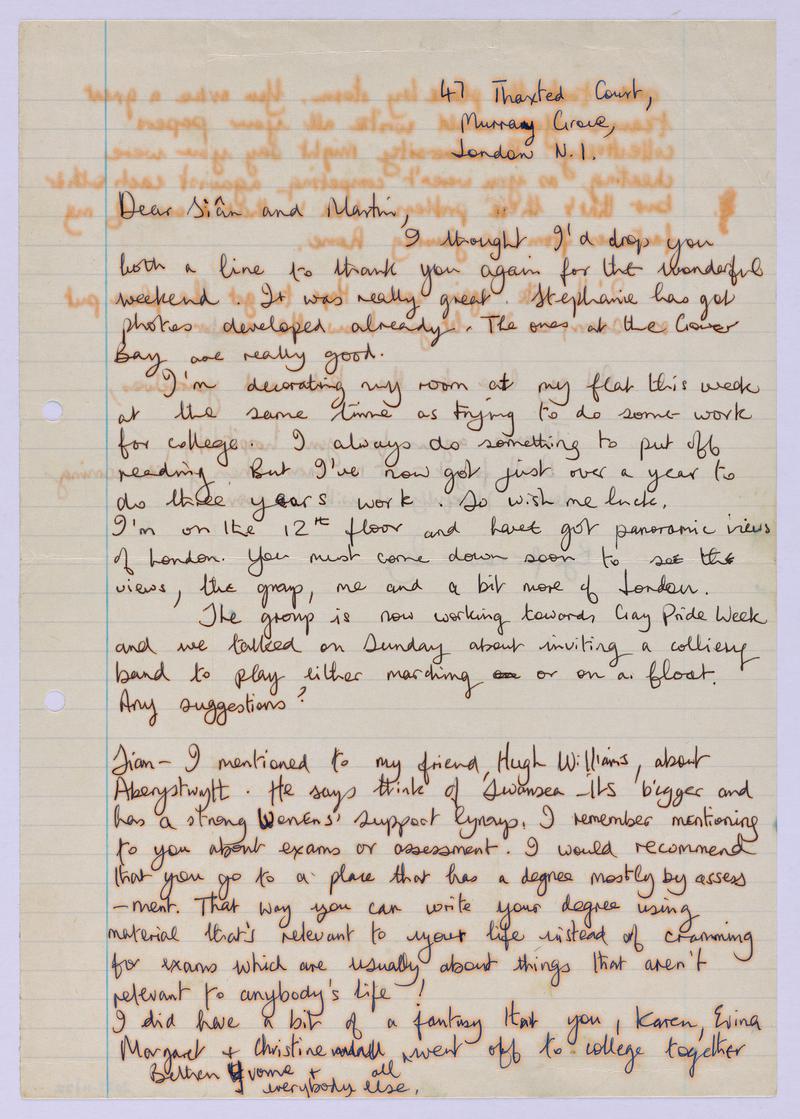 47 Thaxted Court,
Murray Grove,
London N.1.
Dear Siân and Martin,
I thought I'd drop you
both a line to thank you again for the wonderful
weekend. It was really great. Stephanie has got
photos developed already. The ones at the Gower
Bay are really good.
I'm decorating my room at my flat this week
at the same time as trying to do some work
for college. I always do something to put off
reading. But I've now got just over a year to
do three years work. So wish me luck.
I'm on the 12th floor and have got panoramic views
of London. You must come down soon to see the
views, the group, me and a bit more of London.
The group is now working towards Gay Pride Week
and we talked on Sunday about inviting a colliery
band to play either marching or on a float.
Any suggestions?
Sian - I mentioned to my friend, Hugh Williams, about
Aberystwyth. He says think of Swansea - its bigger and
has a strong Womens' Support Group. I remember mentioning
to you about exams or assessment. I would recommend
that you go to a place that has a degree mostly by assess
-ment. That way you can write your degree using
material that's relevant to your life instead of cramming
for exams which are usually about things that aren't
relevant to anybody's life!
I did have a bit of a fantasy that you, Karen,
Margaret + Christine went off to college together
Yvonne + all
everybody else,